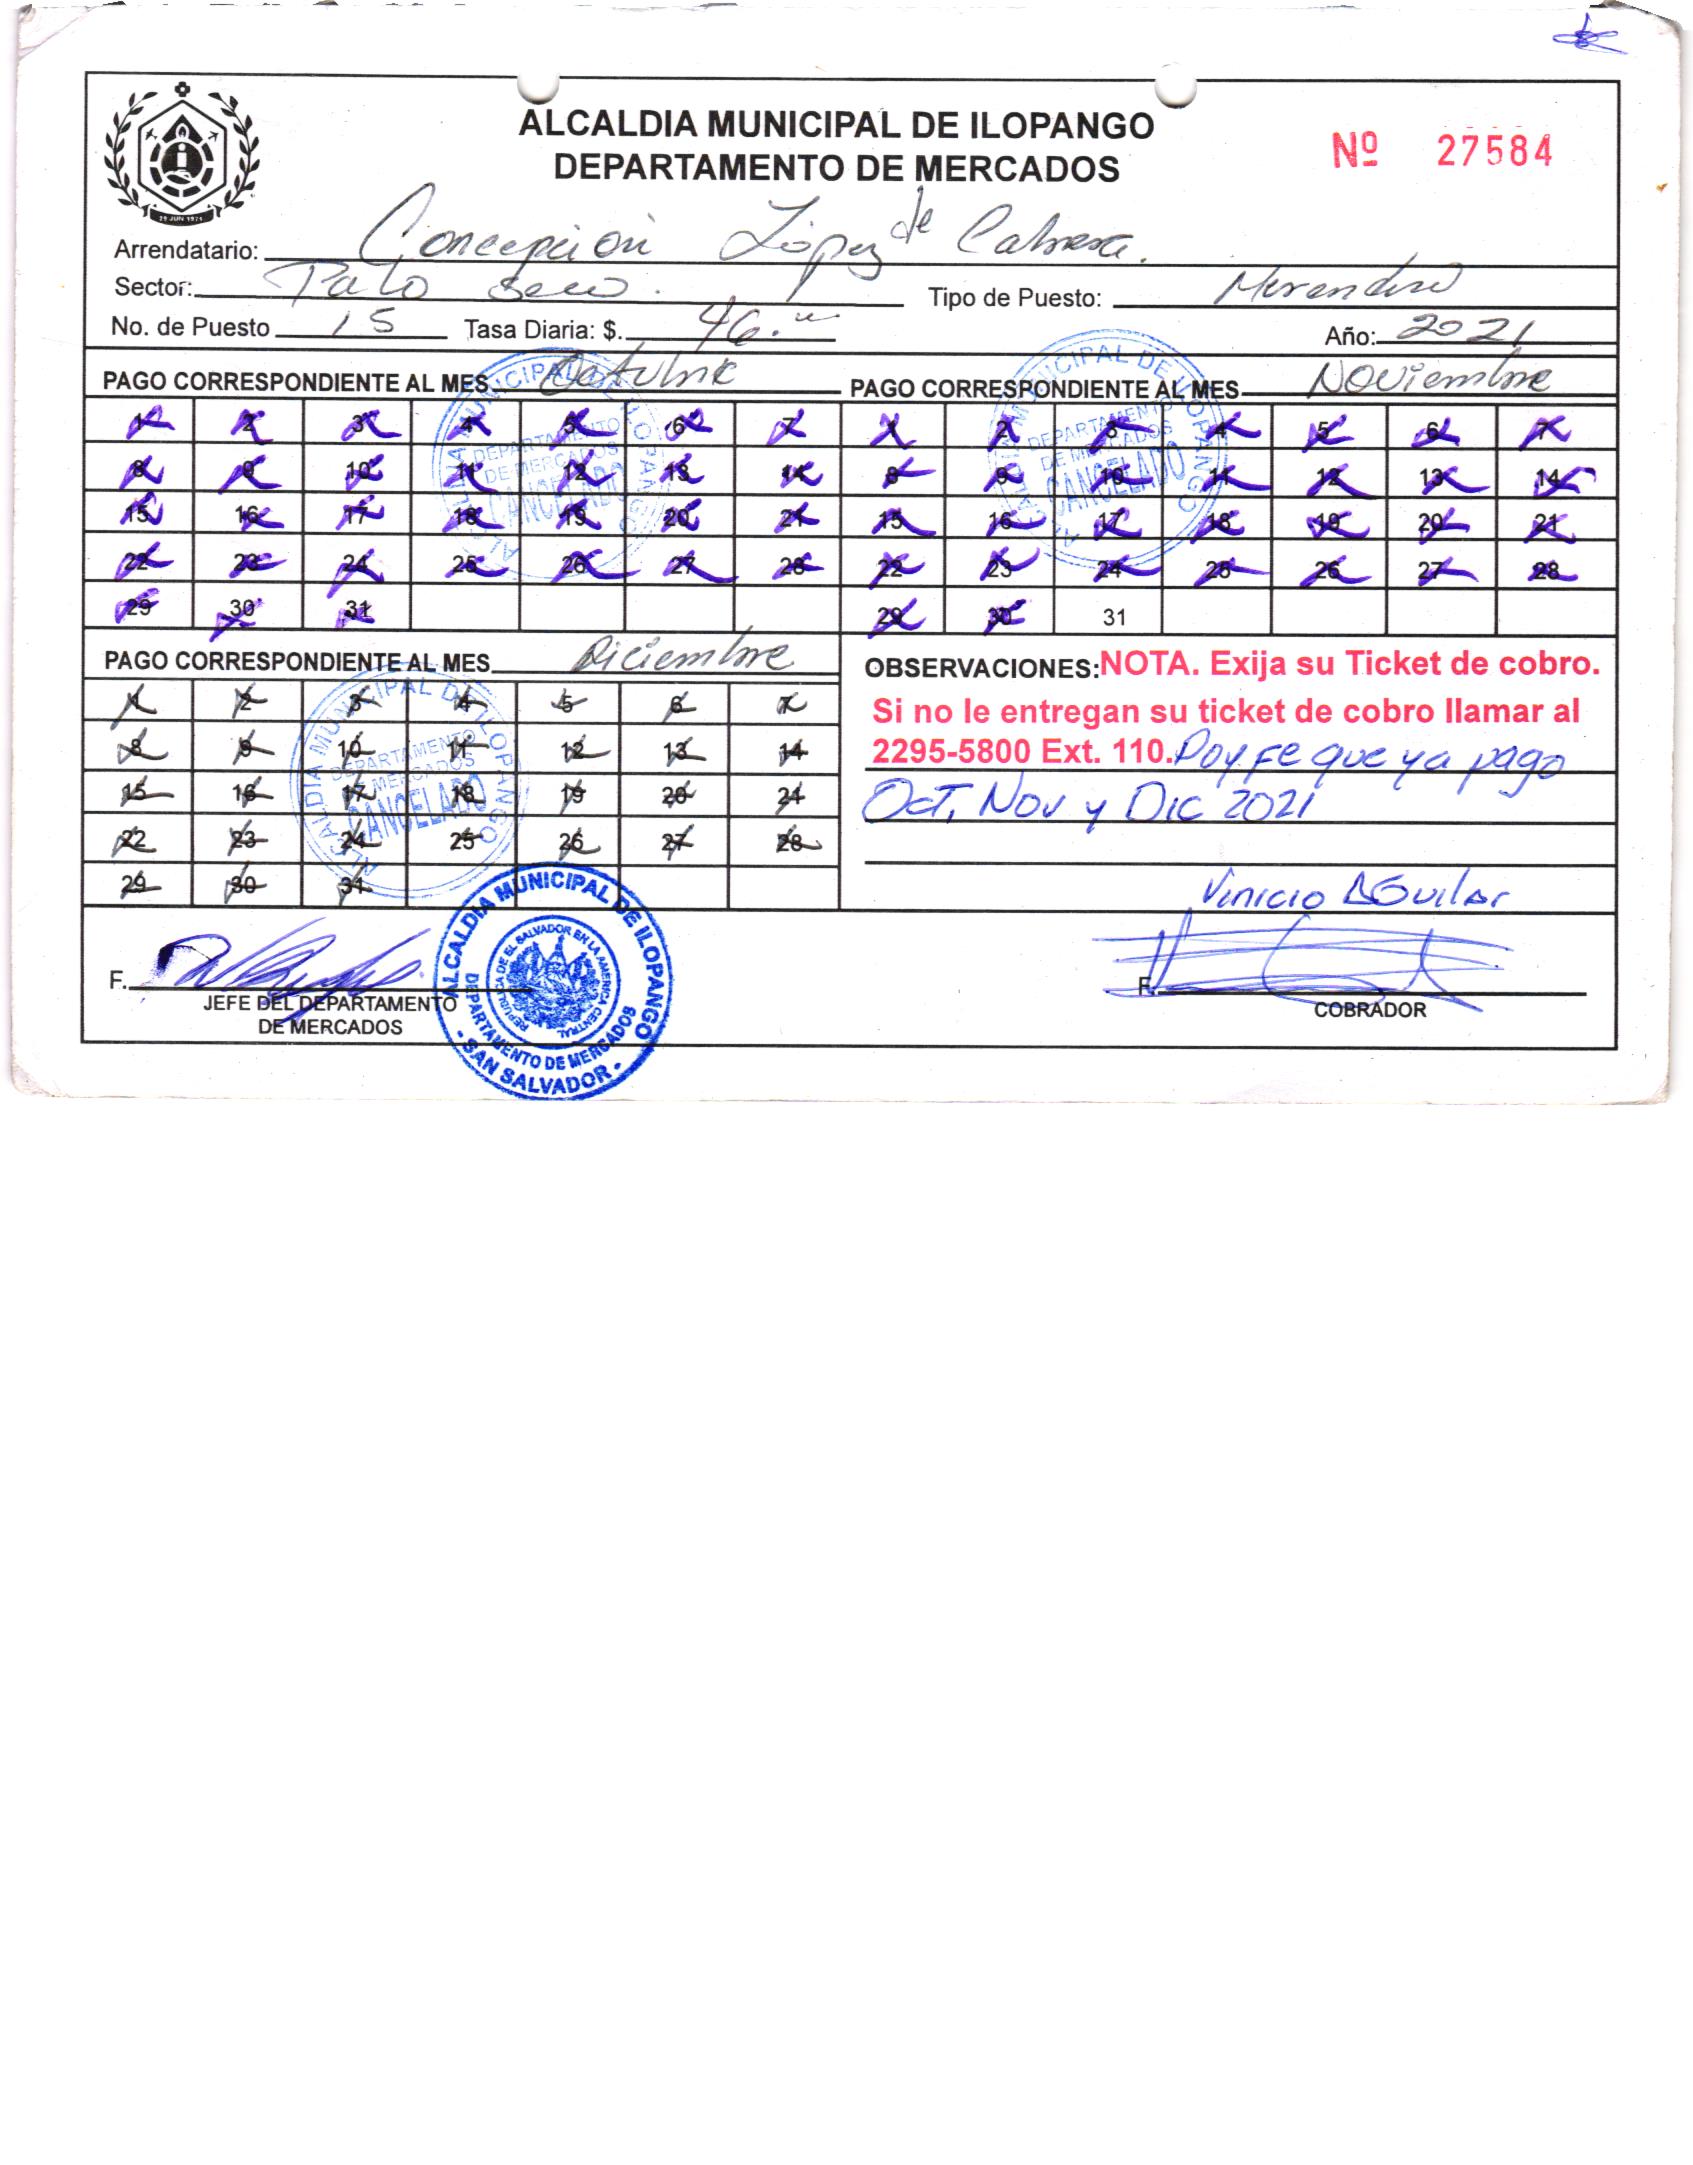 ALCALDIA MUNICIPAL DE ILOPANGO
DEPARTAMENTO DE MERCADOS
Nº 27584
29 JUN 1971
Arrendatario: Concepción López de Cabrera.
Sector: Palo Seco. Tipo de Puesto: Merendero
No. de Puesto 15 Tasa Diaria: $. 46. Año: 2021
PAGO CORRESPONDIENTE AL MES Octubre
1 2 3 4 5 6 7
8 9 10 11 12 13 14
15 16 17 18 19 20 21
22 23 24 25 26 27 28
29 30 31
ALCALDIA MUNICIPAL DE ILOPANGO
DEPARTAMENTO
DE MERCADOS
CANCELADO
PAGO CORRESPONDIENTE AL MES Noviembre
1 2 3 4 5 6 7
8 9 10 11 12 13 14
15 16 17 18 19 20 21
22 23 24 25 26 27 28
29 30 31
ALCALDIA MUNICIPAL DE ILOPANGO
DEPARTAMENTO
DE MERCADOS
CANCELADO
PAGO CORRESPONDIENTE AL MES Diciembre
1 2 3 4 5 6 7
8 9 10 11 12 13 14
15 16 17 18 19 20 21
22 23 24 25 26 27 28
29 30 31
ALCALDIA MUNICIPAL DE ILOPANGO
DEPARTAMENTO
DE MERCADOS
CANCELADO
OBSERVACIONES: NOTA. Exija su Ticket de cobro.
Si no le entregan su ticket de cobro llamar al
2295-5800 Ext. 110. Doy fe que ya pago
Oct, Nov y Dic 2021
Vinicio Aguilar
F.
JEFE DEL DEPARTAMENTO
DE MERCADOS
ALCALDIA MUNICIPAL DE ILOPANGO
DEPARTAMENTO DE MERCADOS
- SAN SALVADOR -
REPUBLICA DE EL SALVADOR EN LA AMERICA CENTRAL
F.
COBRADOR